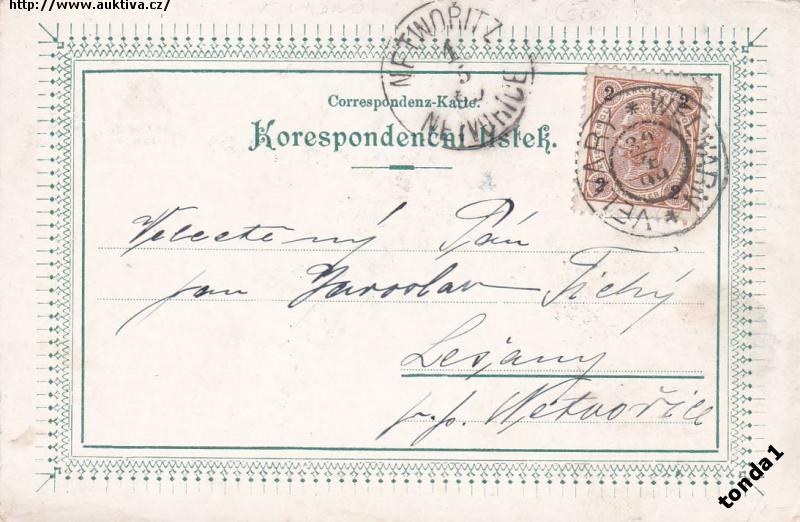 http://www.auktiva.cz/
NETWOŘITZ
1
5
NETVOŘICE
Correspondenz-Karte.
Korespondenční lístek.
2 2
2 2
WELWARN * VELVARY *
Velectěný Pán
pan Jaroslav Tichý
Lešany
p.p. Netvořice
tonda1